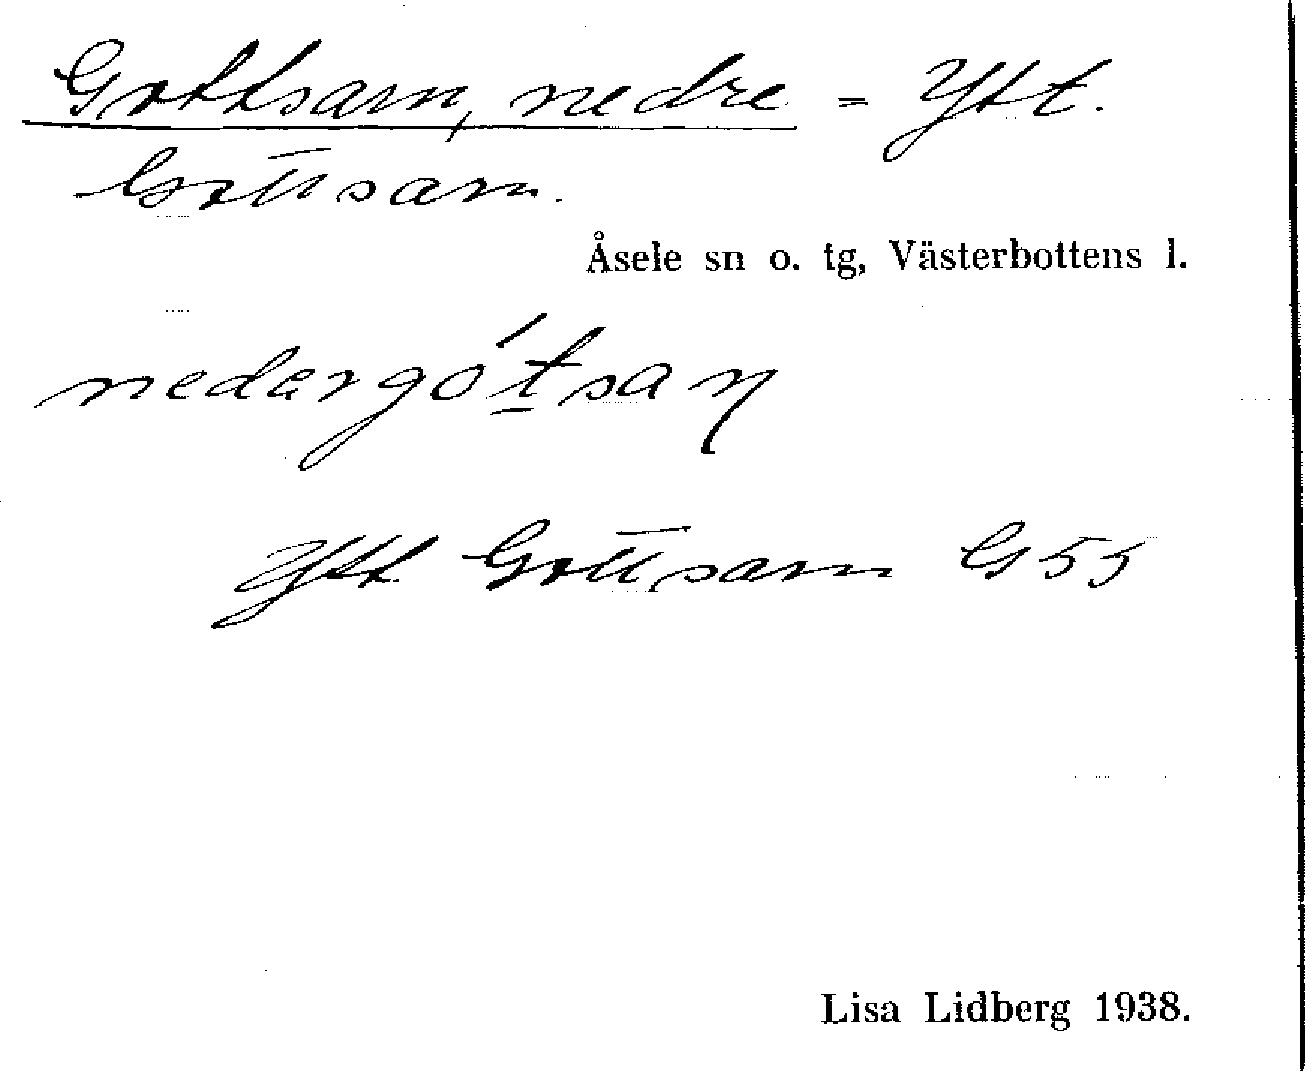 Gottsam, nedre = Ytt.
Gottsam.
Åsele sn o. tg, Västerbottens l.
nedərgót̲saŋ
Ytt Gottsam G55
Lisa Lidberg 1938.